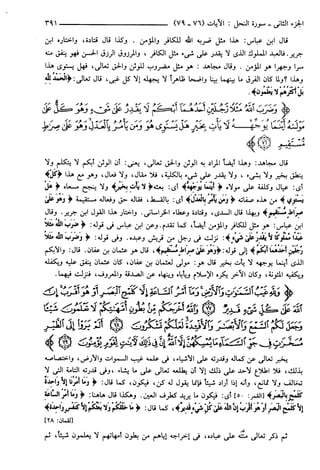 الجزء الثاني - سورة النحل : الآيات (٧٦ - ٧٩) ٣٩١
قال ابن عباس: هذا مثل ضربه الله للكافر والمؤمن . وكذا قال قتادة، واختاره ابن
جرير. فالعبد المملوك الذي لا يقدر على شيء مثل الكافر ، والمرزوق الرزق الحسن فهو ينفق منه
سراً وجهراً هو المؤمن . وقال مجاهد : هو مثل مضروب للوثن وللحق تعالى، فهل يستوي هذا
وهذا؟ ولما كان الفرق ما بينهما بيناً واضحاً ظاهراً لا يجهله إلا كل غبي، قال تعالى: ﴿الحمد لله
بل أكثرهم لا يعلمون﴾.
﴿ وَضَرَبَ اللَّهُ مَثَلًا رَّجُلَيْنِ أَحَدُهُمَا أَبْكَمُ لَا يَقْدِرُ عَلَىٰ شَيْءٍ وَهُوَ كَلٌّ عَلَىٰ
مَوْلَاهُ أَيْنَمَا يُوَجِّههُّ لَا يَأْتِ بِخَيْرٍ هَلْ يَسْتَوِي هُوَ وَمَن يَأْمُرُ بِالْعَدْلِ وَهُوَ عَلَىٰ صِرَاطٍ
مُّسْتَقِيمٍ ﴾
قال مجاهد: وهذا أيضاً المراد به الوثن والحق تعالى، يعني: أن الوثن أبكم لا يتكلم ولا
ينطق بخير ولا بشيء ، ولا يقدر على شيء بالكلية، فلا مقال، ولا فعال، وهو مع هذا ﴿كلّ﴾
أي: عيال وكلفة على مولاه ﴿ أينما يوجهه﴾ أي: يبعثه ﴿لا يأت بخير﴾ ولا ينجح مسعاه، ﴿هل
يستوي﴾ من هذه صفاته ﴿ومن يأمر بالعدل﴾ أي: بالقسط، فقاله حق وفعاله مستقيمة ﴿وهو على
صراط مستقيم﴾ وبهذا قال السدي، وقتادة وعطاء الخراساني. واختار هذا القول ابن جرير. وقال
ابن عباس: هو مثل للكافر والمؤمن أيضاً، كما تقدم. وعن ابن عباس في قوله: ﴿ضرب الله مثلاً
عبداً مملوكاً لا يقدر على شيء﴾: نزلت في رجل من قريش وعبده. وفي قوله: ﴿وضرب الله مثلاً
رجلين أحدهما أبكم﴾ إلى قوله: ﴿وهو على صراط مستقيم﴾، قال: هو عثمان بن عفان. قال: والأبكم
الذي أينما يوجهه لا يأت بخير قال هو: مولى لعثمان بن عفان، كان عثمان ينفق عليه ويكفله
ويكفيه المئونة، وكان الآخر يكره الإسلام ويأباه وينهاه عن الصدقة والمعروف، فنزلت فيهما.
﴿ وَلِلَّهِ غَيْبُ السَّمَاوَاتِ وَالْأَرْضِ وَمَا أَمْرُ السَّاعَةِ إِلَّا كَلَمْحِ الْبَصَرِ أَوْ هُوَ أَقْرَبُ إِنَّ
اللَّهَ عَلَىٰ كُلِّ شَيْءٍ قَدِيرٌ وَاللَّهُ أَخْرَجَكُم مِّن بُطُونِ أُمَّهَاتِكُمْ لَا تَعْلَمُونَ
شَيْئًا وَجَعَلَ لَكُمُ السَّمْعَ وَالْأَبْصَارَ وَالْأَفْئِدَةَ لَعَلَّكُمْ تَشْكُرُونَ أَلَمْ يَرَوْا إِلَى الطَّيْرِ
مُسَخَّرَاتٍ فِي جَوِّ السَّمَاءِ مَا يُمْسِكُهُنَّ إِلَّا اللَّهُ إِنَّ فِي ذَٰلِكَ لَآيَاتٍ لِّقَوْمٍ يُؤْمِنُونَ ﴾
يخبر تعالى عن كماله وقدرته على الأشياء، في علمه غيب السموات والأرض، واختصاصه
بذلك، فلا اطلاع لأحد على ذلك إلا أن يطلعه تعالى على ما يشاء، وفي قدرته التامة التي لا
تخالف ولا تمانع، وأنه إذا أراد شيئاً فإنما يقول له كن، فيكون، كما قال: ﴿وما أمرنا إلا واحدة
كلمح بالبصر﴾ [القمر: ٥٠] أي: فيكون ما يريد كطرف العين. وهكذا قال هاهنا: ﴿وما أمر الساعة
إلا كلمح البصر أو هو أقرب إن الله على كل شيء قدير﴾، كما قال: ﴿ما خلقكم ولا بعثكم إلا كنفس واحدة﴾
[لقمان: ٢٨]
ثم ذكر تعالى منته على عباده، في إخراجه إياهم من بطون أمهاتهم لا يعلمون شيئاً، ثم